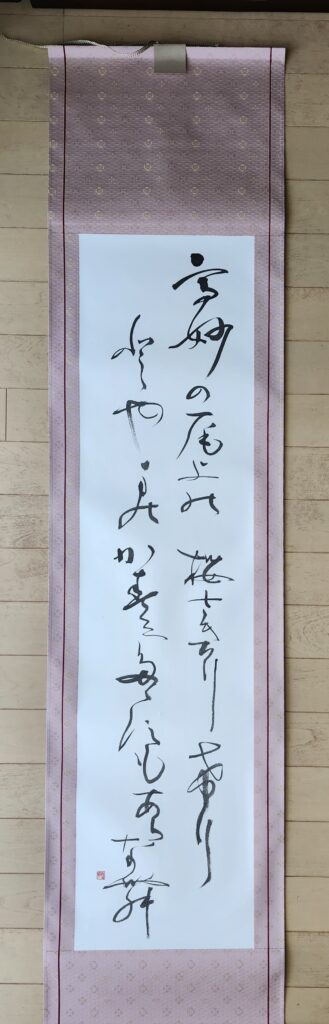 高砂の尾上の桜さきにけり
とやまのかすみたゝずもあらなむ